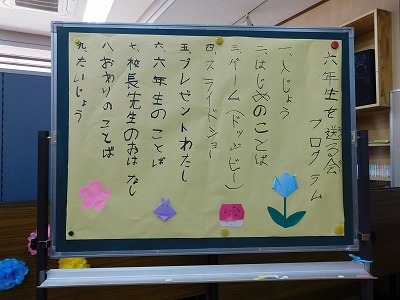 六年生を送る会
プログラム
一、入じょう
二、はじめのことば
三、ゲーム(ドッジビー)
四、スライドショー
五、プレゼントわたし
六、六年生のことば
七、校長先生のおはなし
八、おわりのことば
九、たいじょう